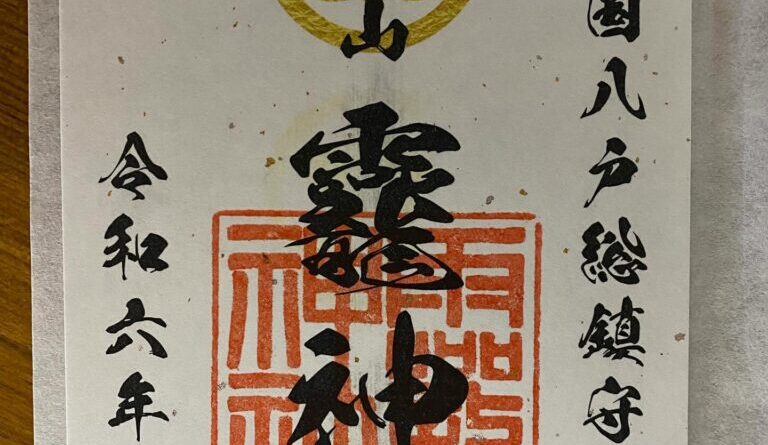 国八戸総鎮守
山龗神
令和六年